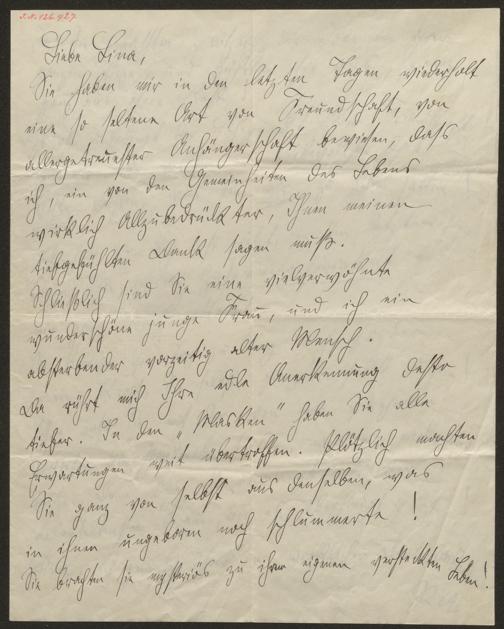 J.N. 126.927
Liebe Lina,
Sie haben mir in den letzten Tagen wiederholt
eine so seltene Art von Freundschaft, von
allergetreuester Anhängerschaft bewiesen, dass
ich, ein von den Gemeinheiten des Lebens
wirklich Allzubedrückter, Ihnen meinen
tiefgefühlten Dank sagen muß.
Schließlich sind Sie eine vielverwöhnte
wunderschöne junge Frau, und ich ein
absterbender vorzeitig alter Mensch.
Da rührt mich Ihre edle Anerkennung desto
tiefer. In den „Masken“ haben Sie alle
Erwartungen weit übertroffen. Plötzlich machten
Sie ganz von selbst aus denselben, was
in ihnen ungeboren noch schlummerte!
Sie brachten sie mysteriös zu ihrem eigenen versteckten Leben!